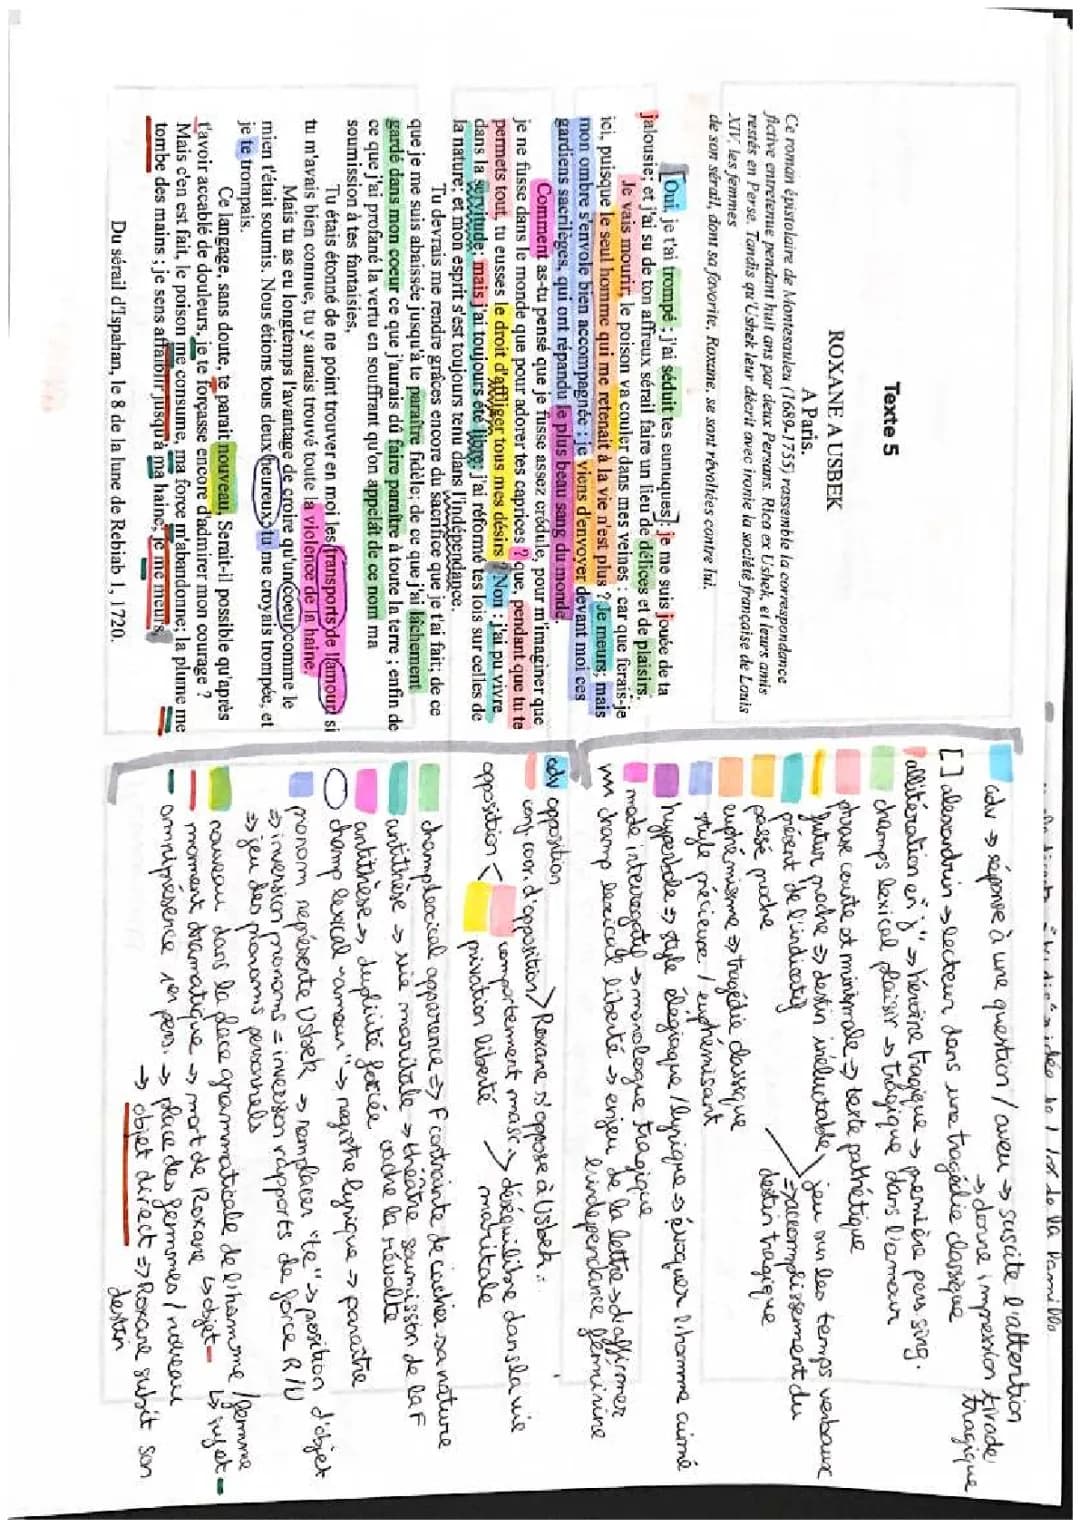 Texte 5
ROXANE A USBEK
A Paris.
Ce roman épistolaire de Montesquieu (1689-1755) rassemble la correspondance
fictive entretenue pendant huit ans par deux Persans, Rica et Usbek, et leurs amis
restés en Perse. Tandis qu'Usbek leur décrit avec ironie la société française de Louis
XIV, les femmes
de son sérail, dont sa favorite, Roxane, se sont révoltées contre lui.
[Oui, je t'ai trompé ; j'ai séduit tes eunuques]; je me suis jouée de ta
jalousie; et j'ai su de ton affreux sérail faire un lieu de délices et de plaisirs.
Je vais mourir, le poison va couler dans mes veines : car que ferais-je
ici, puisque le seul homme qui me retenait à la vie n'est plus ? Je meurs; mais
mon ombre s'envole bien accompagnée : je viens d'envoyer devant moi ces
gardiens sacrilèges, qui ont répandu le plus beau sang du monde.
Comment as-tu pensé que je fusse assez crédule, pour m'imaginer que
je ne fusse dans le monde que pour adorer tes caprices ? que, pendant que tu te
permets tout, tu eusses le droit d'affliger tous mes désirs ? Non : j'ai pu vivre
dans la servitude; mais j'ai toujours été libre: j'ai réformé tes lois sur celles de
la nature; et mon esprit s'est toujours tenu dans l'indépendance.
Tu devrais me rendre grâces encore du sacrifice que je t'ai fait; de ce
que je me suis abaissée jusqu'à te paraître fidèle; de ce que j'ai lâchement
gardé dans mon coeur ce que j'aurais dû faire paraître à toute la terre ; enfin de
ce que j'ai profané la vertu en souffrant qu'on appelât de ce nom ma
soumission à tes fantaisies.
Tu étais étonné de ne point trouver en moi les transports de l'amour: si
tu m'avais bien connue, tu y aurais trouvé toute la violence de la haine.
Mais tu as eu longtemps l'avantage de croire qu'un coeur comme le
mien t'était soumis. Nous étions tous deux heureux: tu me croyais trompée, et
je te trompais.
Ce langage, sans doute, te paraît nouveau. Serait-il possible qu'après
t'avoir accablé de douleurs, je te forçasse encore d'admirer mon courage ?
Mais c'en est fait, le poison me consume, ma force m'abandonne; la plume me
tombe des mains ; je sens affaiblir jusqu'à ma haine; je me meurs.
Du sérail d'Ispahan, le 8 de la lune de Rebiab 1, 1720.
de la famille
adv ⇒ réponse à une question / aveu → suscite l'attention
→ donne impression tirade
tragique
[ ] alexandrin → lecteur dans une tragédie classique
allitération en "j" ⇒ héroïne tragique → première pers sing.
champs lexical plaisir → tragique dans l'amour
phrase courte et minimale ⇒ texte pathétique
futur proche ⇒ destin inéluctable
présent de l'indicatif
passé proche
jeu sur les temps verbaux
⇒ accomplissement du
destin tragique
euphémisme ⇒ tragédie classique
style précieuse / euphémisant
hyperbole ⇒ style élégiaque / lyrique → évoquer l'homme aimé
mode interrogatif → monologue tragique
champ lexical liberté → enjeu de la lettre → d'affirmer
l'indépendance féminine
adv opposition
conj coor. d'opposition > Roxane s'oppose à Usbek :
opposition < comportement maris
privation liberté
→ déséquilibre dans la vie
maritale
champ lexical apparence ⇒ F contrainte de cacher sa nature
antithèse → vie maritale → théâtre soumission de la F
cache la révolte
antithèse → duplicité forcée
champ lexical "amour" → registre lyrique → paraître
pronom représente Usbek → remplacer "te" → position d'objet
⇒ inversion pronoms = inversion rapports de force R/U
⇒ jeu des pronoms personnels
nouveau dans la place grammaticale de l'homme / femme
moment dramatique → mort de Roxane ↳ objet ↳ sujet
omniprésence 1er pers. → place des femmes / nouveau
→ objet direct ⇒ Roxane subit son
destin